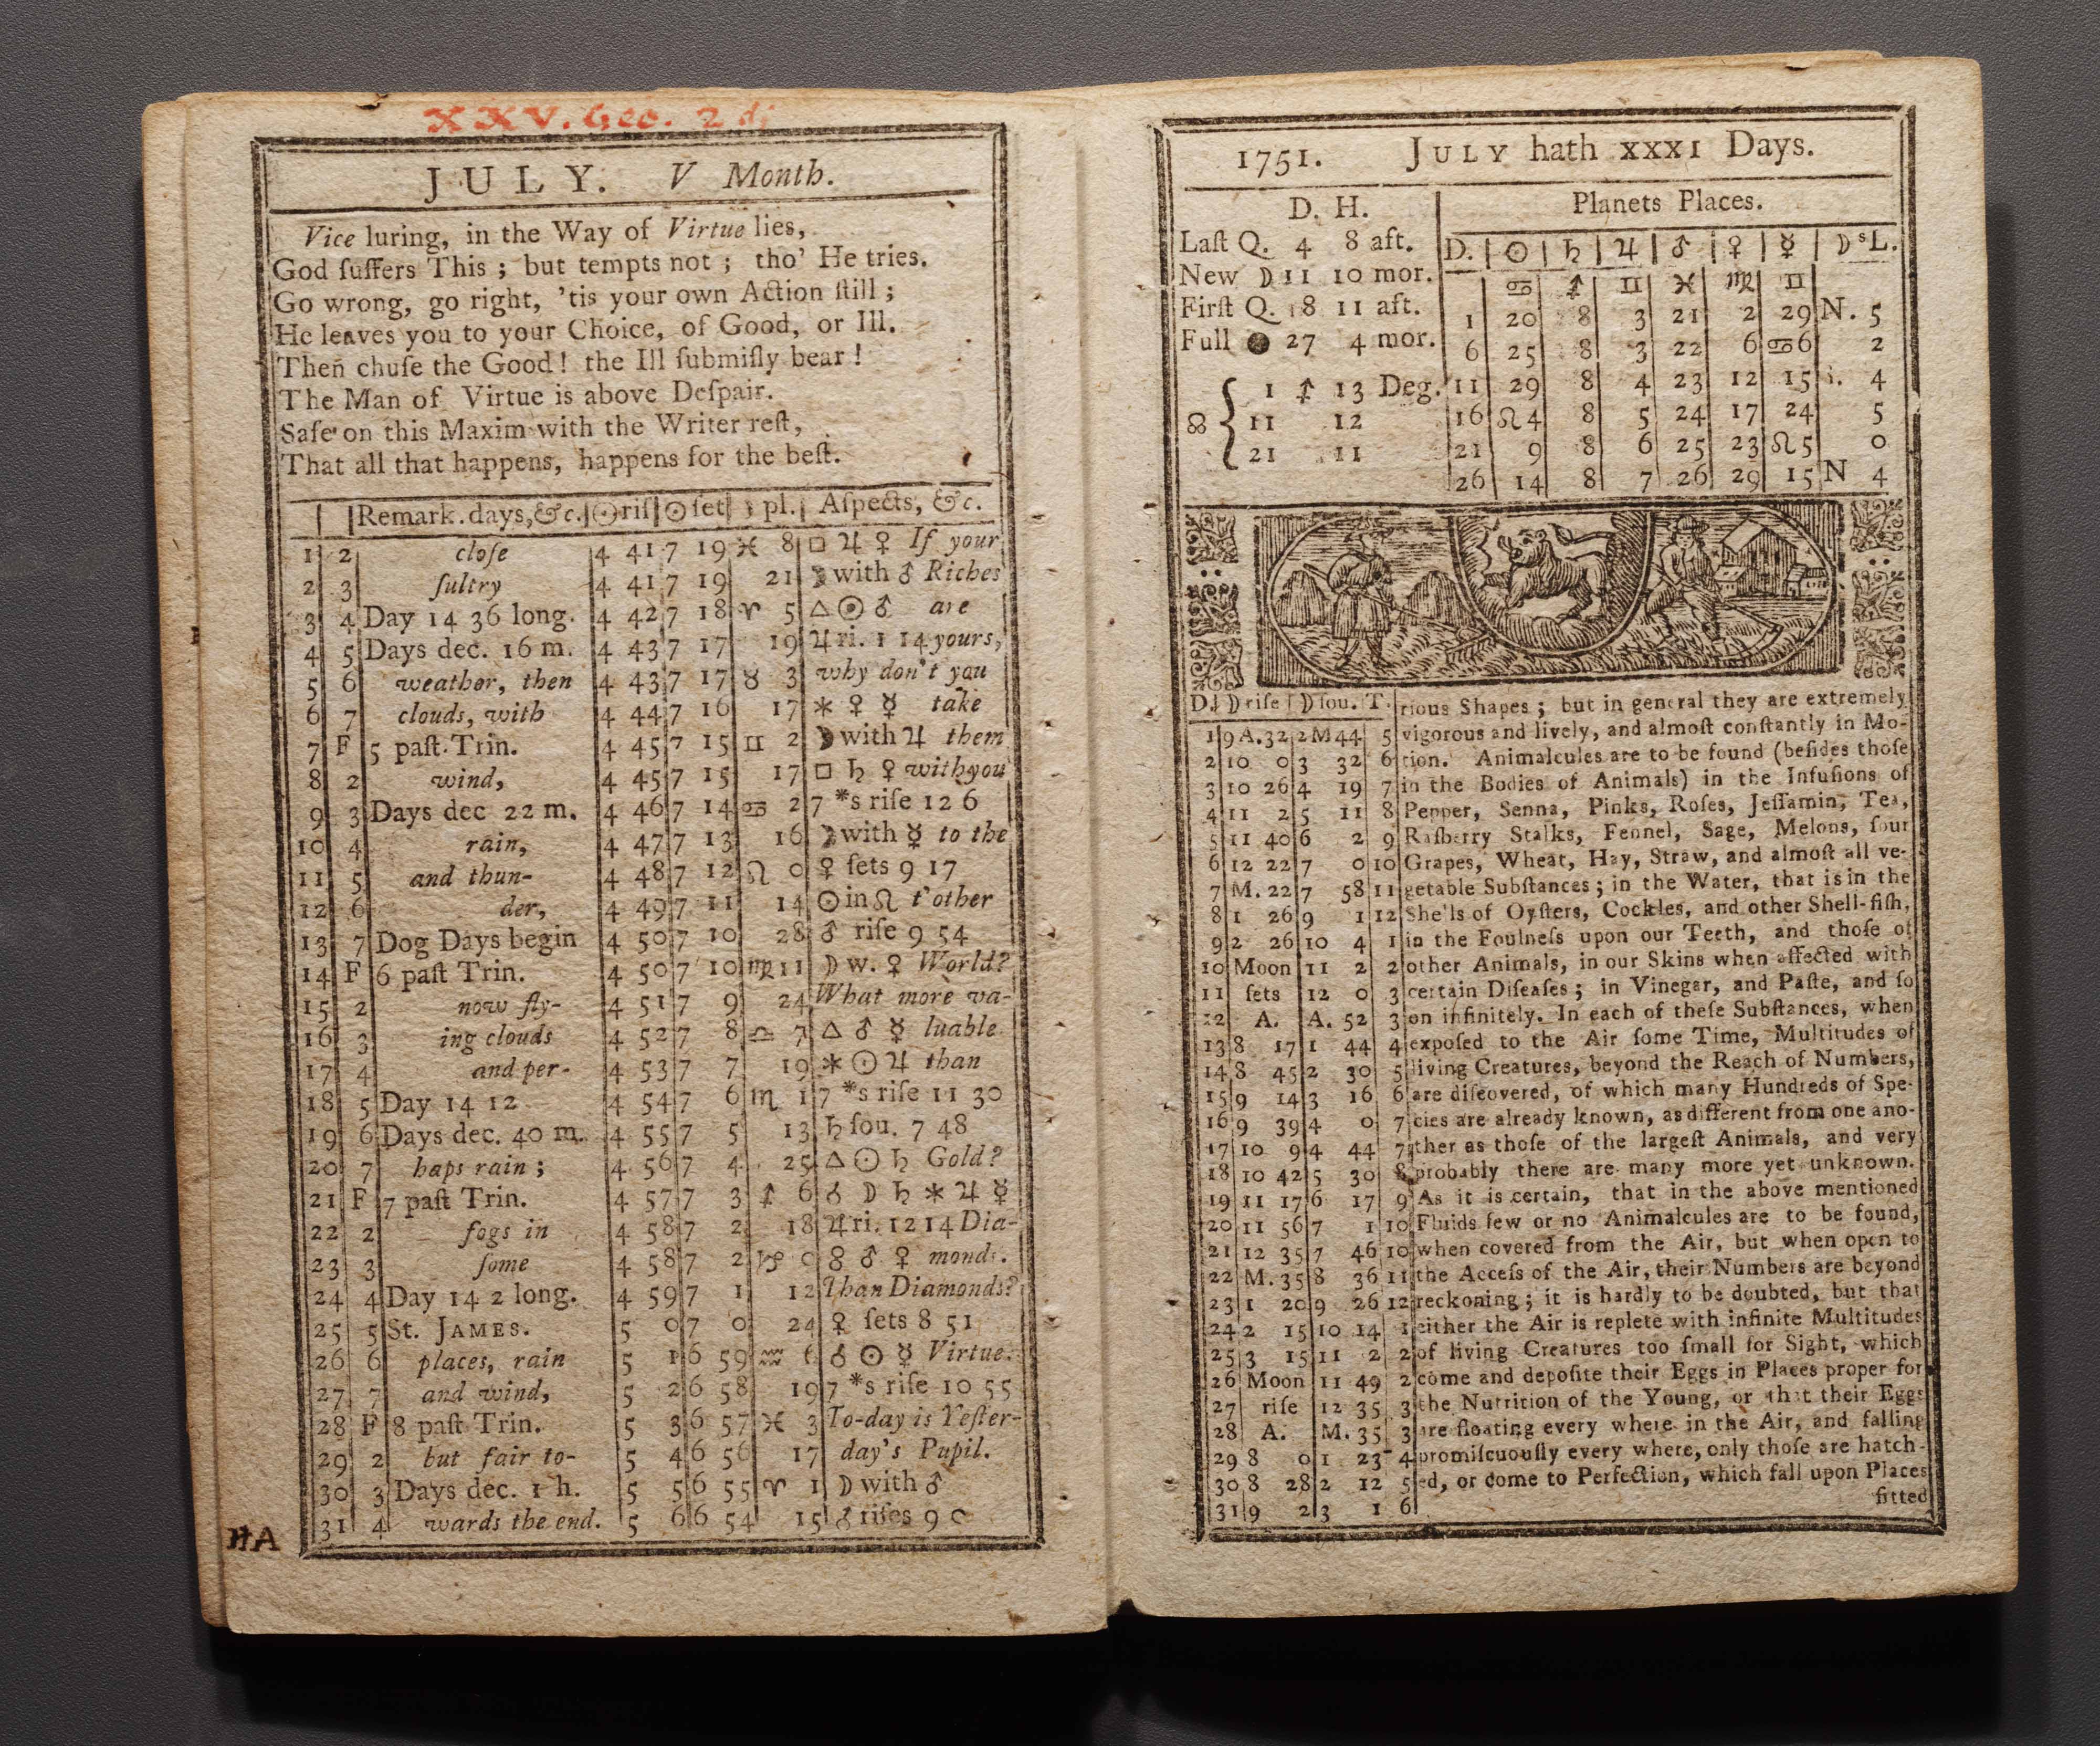 XXV. Geo. 2 d;
JULY. V Month.
Vice luring, in the Way of Virtue lies,
God ſuffers This ; but tempts not ; tho' He tries.
Go wrong, go right, 'tis your own Action ſtill ;
He leaves you to your Choice, of Good, or Ill.
Then chuſe the Good! the Ill ſubmiſly bear!
The Man of Virtue is above Deſpair.
Safe on this Maxim with the Writer reſt,
That all that happens, happens for the beſt.
Remark. days, &c. ☉ riſ ☉ ſet ☽ pl. Aſpects, &c.
1 2 cloſe 4 41 7 19 ♓ 8 □ ♃ ♀ If your
2 3 ſultry 4 41 7 19 21 ☽ with ♂ Riches
3 4 Day 14 36 long. 4 42 7 18 ♈ 5 △ ☉ ♂ are
4 5 Days dec. 16 m. 4 43 7 17 19 ♃ ri. 1 14 yours,
5 6 weather, then 4 43 7 17 ♉ 3 why don't you
6 7 clouds, with 4 44 7 16 17 ⚹ ♀ ☿ take
7 F 5 paſt Trin. 4 45 7 15 ♊ 2 ☽ with ♃ them
8 2 wind, 4 45 7 15 17 □ ♄ ♀ with you
9 3 Days dec 22 m. 4 46 7 14 ♋ 2 7 *s riſe 12 6
10 4 rain, 4 47 7 13 16 ☽ with ☿ to the
11 5 and thun- 4 48 7 12 ♌ 0 ♀ ſets 9 17
12 6 der, 4 49 7 11 14 ☉ in ♌ t'other
13 7 Dog Days begin 4 50 7 10 28 ♂ riſe 9 54
14 F 6 paſt Trin. 4 50 7 10 ♍ 11 ☽ w. ♀ World?
15 2 now fly- 4 51 7 9 24 What more va-
16 3 ing clouds 4 52 7 8 ♎ 7 △ ♂ ☿ luable
17 4 and per- 4 53 7 7 19 ⚹ ☉ ♃ than
18 5 Day 14 12 4 54 7 6 ♏ 1 7 *s riſe 11 30
19 6 Days dec. 40 m. 4 55 7 5 13 ♄ ſou. 7 48
20 7 haps rain ; 4 56 7 4 25 △ ☉ ♄ Gold?
21 F 7 paſt Trin. 4 57 7 3 ♐ 6 ☌ ☽ ♄ ⚹ ♃ ☿
22 2 fogs in 4 58 7 2 18 ♃ ri. 12 14 Dia-
23 3 ſome 4 58 7 2 ♑ 0 ☍ ♂ ♀ monds.
24 4 Day 14 2 long. 4 59 7 1 12 Than Diamonds?
25 5 St. JAMES. 5 0 7 0 24 ♀ ſets 8 51
26 6 places, rain 5 1 6 59 ♒ 6 ☌ ☉ ☿ Virtue.
27 7 and wind, 5 2 6 58 19 7 *s riſe 10 55
28 F 8 paſt Trin. 5 3 6 57 ♓ 3 To-day is Yeſter-
29 2 but fair to- 5 4 6 56 17 day's Pupil.
30 3 Days dec. 1 h. 5 5 6 55 ♈ 1 ☽ with ♂
31 4 wards the end. 5 6 6 54 15 ♂ riſes 9 0
HA
1751. JULY hath XXXI Days.
D. H.
Laſt Q. 4 8 aft.
New ☽ 11 10 mor.
Firſt Q. 18 11 aft.
Full ● 27 4 mor.
☊ { 1 ♐ 13 Deg.
11 12
21 11
Planets Places.
D. ☉ ♄ ♃ ♂ ♀ ☿ ☽ sL.
♋ ♐ ♊ ♓ ♍ ♊
1 20 8 3 21 2 29 N. 5
6 25 8 3 22 6 ♋6 2
11 29 8 4 23 12 15 4
16 ♌4 8 5 24 17 24 5
21 9 8 6 25 23 ♌5 0
26 14 8 7 26 29 15 N 4
D. ☽ riſe ☽ ſou. T.
1 9 A. 32 2 M 44 5
2 10 0 3 32 6
3 10 26 4 19 7
4 11 2 5 11 8
5 11 40 6 2 9
6 12 22 7 0 10
7 M. 22 7 58 11
8 1 26 9 1 12
9 2 26 10 4 1
10 Moon 11 2 2
11 ſets 12 0 3
12 A. A. 52 3
13 8 17 1 44 4
14 8 45 2 30 5
15 9 14 3 16 6
16 9 39 4 0 7
17 10 9 4 44 7
18 10 42 5 30 8
19 11 17 6 17 9
20 11 56 7 1 10
21 12 35 7 46 10
22 M. 35 8 36 11
23 1 20 9 26 12
24 2 15 10 14 1
25 3 15 11 2 2
26 Moon 11 49 2
27 riſe 12 35 3
28 A. M. 35 3
29 8 0 1 23 4
30 8 28 2 12 5
31 9 2 3 1 6
rious Shapes ; but in general they are extremely
vigorous and lively, and almoſt conſtantly in Mo-
tion. Animalcules are to be found (beſides thoſe
in the Bodies of Animals) in the Infuſions of
Pepper, Senna, Pinks, Roſes, Jeſſamin, Tea,
Raſberry Stalks, Fennel, Sage, Melons, ſour
Grapes, Wheat, Hay, Straw, and almoſt all ve-
getable Subſtances ; in the Water, that is in the
Shells of Oyſters, Cockles, and other Shell-fiſh,
in the Foulneſs upon our Teeth, and thoſe of
other Animals, in our Skins when affected with
certain Diſeaſes ; in Vinegar, and Paſte, and ſo
on infinitely. In each of theſe Subſtances, when
expoſed to the Air ſome Time, Multitudes of
living Creatures, beyond the Reach of Numbers,
are diſcovered, of which many Hundreds of Spe-
cies are already known, as different from one ano-
ther as thoſe of the largeſt Animals, and very
probably there are many more yet unknown.
As it is certain, that in the above mentioned
Fluids few or no Animalcules are to be found,
when covered from the Air, but when open to
the Acceſs of the Air, their Numbers are beyond
reckoning ; it is hardly to be doubted, but that
either the Air is replete with infinite Multitudes
of living Creatures too ſmall for Sight, which
come and depoſite their Eggs in Places proper for
the Nutrition of the Young, or that their Eggs
are floating every where in the Air, and falling
promiſcuouſly every where, only thoſe are hatch-
ed, or come to Perfection, which fall upon Places
fitted